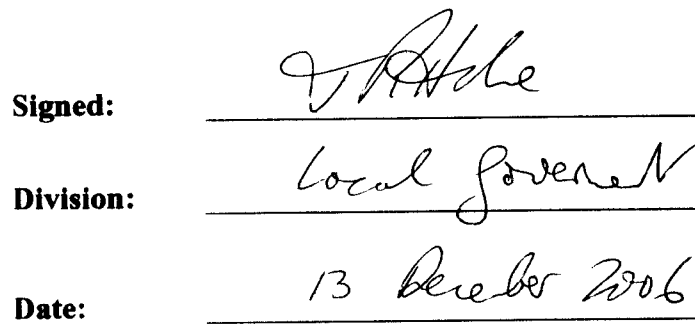 Signed:
Division: Local Government
Date: 13 December 2006